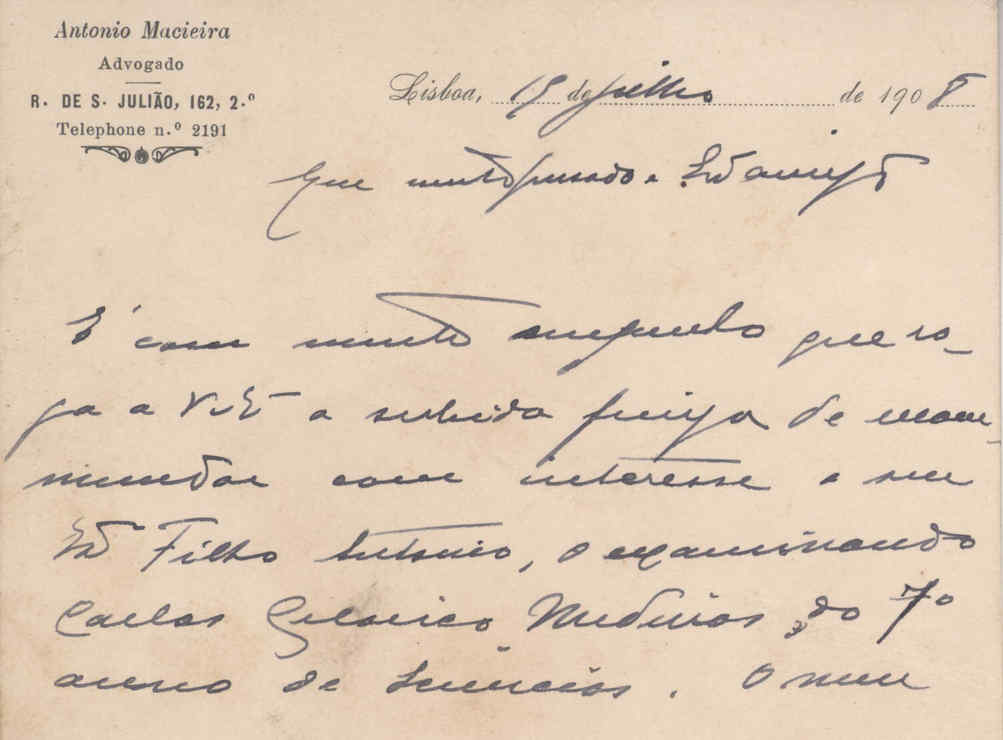 Antonio Macieira
Advogado
R. DE S. JULIÃO, 162, 2.º
Telephone n.º 2191
Lisboa, 19 de julho de 1908
Que muito presado e Ex.mo amigo
É com muito empenho que ro-
ga a V. Ex.ª a subida fineza de recom-
mendar com interesse a seu
Ex.mo Filho Antonio, o examinando
Carlos Medeiros, do 7º
anno de Sciencias. O meu